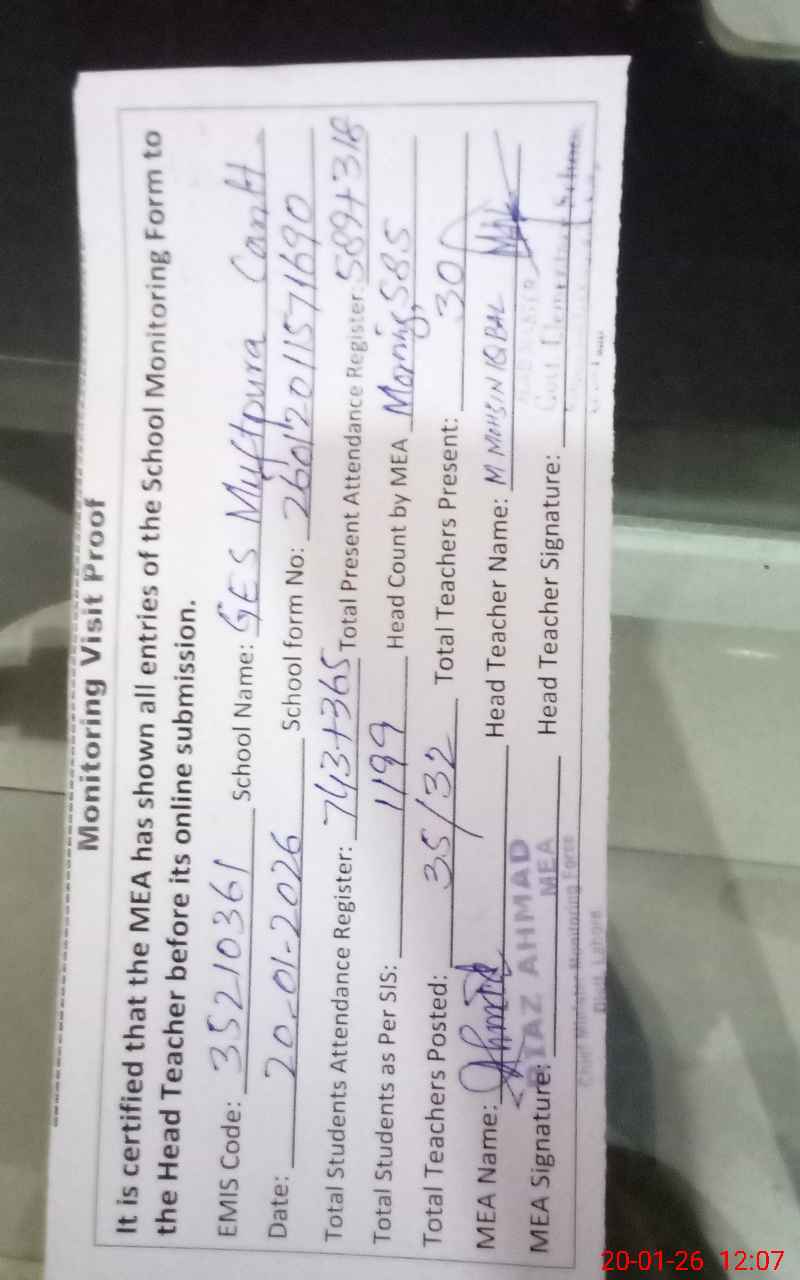 Monitoring Visit Proof
It is certified that the MEA has shown all entries of the School Monitoring Form to
the Head Teacher before its online submission.
EMIS Code: 35210361 School Name: GES Muftpura Cantt
Date: 20-01-2026 School form No: 2601201571690
Total Students Attendance Register: 743+365 Total Present Attendance Register: 589+318
Total Students as Per SIS: 1199 Head Count by MEA Morning 585
Total Teachers Posted: 35/32 Total Teachers Present: 30
MEA Name: Head Teacher Name: M MOHSIN IQBAL
MEA Signature: Head Teacher Signature:
AHMAD
MEA
Monitoring Force
Distt. Lahore
20-01-26 12:07